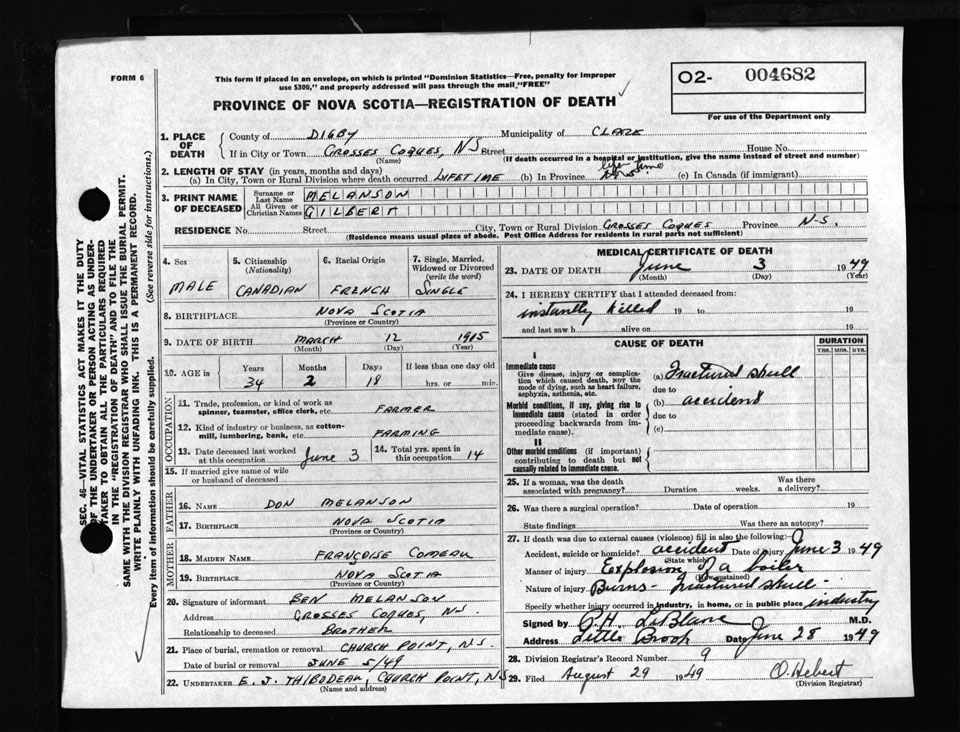 FORM 6
This form if placed in an envelope, on which is printed "Dominion Statistics—Free, penalty for improper
use $300," and properly addressed will pass through the mail "FREE"
O2- 004682
For use of the Department only
PROVINCE OF NOVA SCOTIA—REGISTRATION OF DEATH
1. PLACE OF DEATH
County of DIGBY Municipality of CLARE
If in City or Town GROSSES COQUES, NS Street House No.
(Name) (If death occurred in a hospital or institution, give the name instead of street and number)
2. LENGTH OF STAY (in years, months and days)
(a) In City, Town or Rural Division where death occurred LIFETIME (b) In Province life time (c) In Canada (if immigrant)
3. PRINT NAME OF DECEASED
Surname or Last Name MELANSON
All Given or Christian Names GILBERT
RESIDENCE No. Street City, Town or Rural Division GROSSES COQUES Province N-S.
(Residence means usual place of abode. Post Office Address for residents in rural parts not sufficient)
4. Sex
MALE
5. Citizenship (Nationality)
CANADIAN
6. Racial Origin
FRENCH
7. Single, Married, Widowed or Divorced (write the word)
SINGLE
8. BIRTHPLACE NOVA SCOTIA
(Province or Country)
9. DATE OF BIRTH MARCH 12 1915
(Month) (Day) (Year)
10. AGE in Years Months Days If less than one day old
34 2 18 hrs. or min.
OCCUPATION
11. Trade, profession, or kind of work as spinner, teamster, office clerk, etc. FARMER
12. Kind of industry or business, as cotton-mill, lumbering, bank, etc. FARMING
13. Date deceased last worked at this occupation June 3
14. Total yrs. spent in this occupation 14
15. If married give name of wife or husband of deceased
FATHER
16. Name DON MELANSON
17. Birthplace NOVA SCOTIA
(Province or Country)
MOTHER
18. Maiden Name FRANÇOISE COMEAU
19. Birthplace NOVA SCOTIA
(Province or Country)
20. Signature of informant BEN MELANSON
Address GROSSES COQUES, NS.
Relationship to deceased BROTHER
21. Place of burial, cremation or removal CHURCH POINT, NS.
Date of burial or removal JUNE 5/49
22. Undertaker E. J. THIBODEAU, CHURCH POINT, NS
(Name and address)
MEDICAL CERTIFICATE OF DEATH
23. DATE OF DEATH June 3 1949
(Month) (Day) (Year)
24. I HEREBY CERTIFY that I attended deceased from:
instantly killed 19 to 19
and last saw h alive on 19
CAUSE OF DEATH
DURATION
YRS. MOS. DYS.
I
Immediate cause
Give disease, injury or complication which caused death, NOT the mode of dying, such as heart failure, asphyxia, asthenia, etc.
(a) Fractured skull
due to
Morbid conditions, if any, giving rise to immediate cause (stated in order proceeding backwards from immediate cause).
(b) accident
due to
(c)
II
Other morbid conditions (if important) contributing to death but not causally related to immediate cause.
25. If a woman, was the death associated with pregnancy? Duration weeks. Was there a delivery?
26. Was there a surgical operation? Date of operation 19
State findings Was there an autopsy?
27. If death was due to external causes (violence) fill in also the following:—
Accident, suicide or homicide? accident Date of injury June 3 1949
(State which)
Manner of injury Explosion of a boiler
(How sustained)
Nature of injury Burns - fractured skull -
Specify whether injury occurred in industry, in home, or in public place industry
Signed by P.H. LeBlanc M.D.
Address Little Brook Date June 28 1949
28. Division Registrar's Record Number 9
29. Filed August 29 1949 O. Hebert
(Division Registrar)
SEC. 46—VITAL STATISTICS ACT MAKES IT THE DUTY
OF THE UNDERTAKER OR PERSON ACTING AS UNDER-
TAKER TO OBTAIN ALL THE PARTICULARS REQUIRED
IN THE "REGISTRATION OF DEATH" AND TO FILE THE
SAME WITH THE DIVISION REGISTRAR WHO SHALL ISSUE THE BURIAL PERMIT.
WRITE PLAINLY WITH UNFADING INK. THIS IS A PERMANENT RECORD.
Every item of information should be carefully supplied. (See reverse side for instructions.)